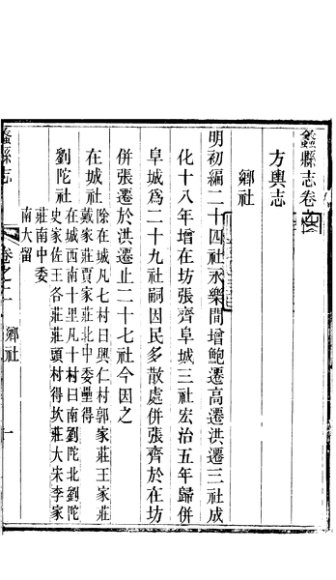 蠡縣志卷
方輿志
鄉社
明初編二十四社永樂間增鮑遷高遷洪遷三社成
化十八年增在坊張齊阜城三社宏治五年歸併
阜城爲二十九社嗣因民多散處併張齊於在坊
併張遷於洪遷止二十七社今因之
在城社
除在城凡七村曰興仁村郭家莊王家莊
戴家莊賈家莊北中委壘得
劉陀社
在城西南十里凡十村曰南劉陀北劉陀
史家佐王各莊莊頭村得坎莊大宋李家
莊南中委
南大留
蠡縣志
卷之
鄉社
一